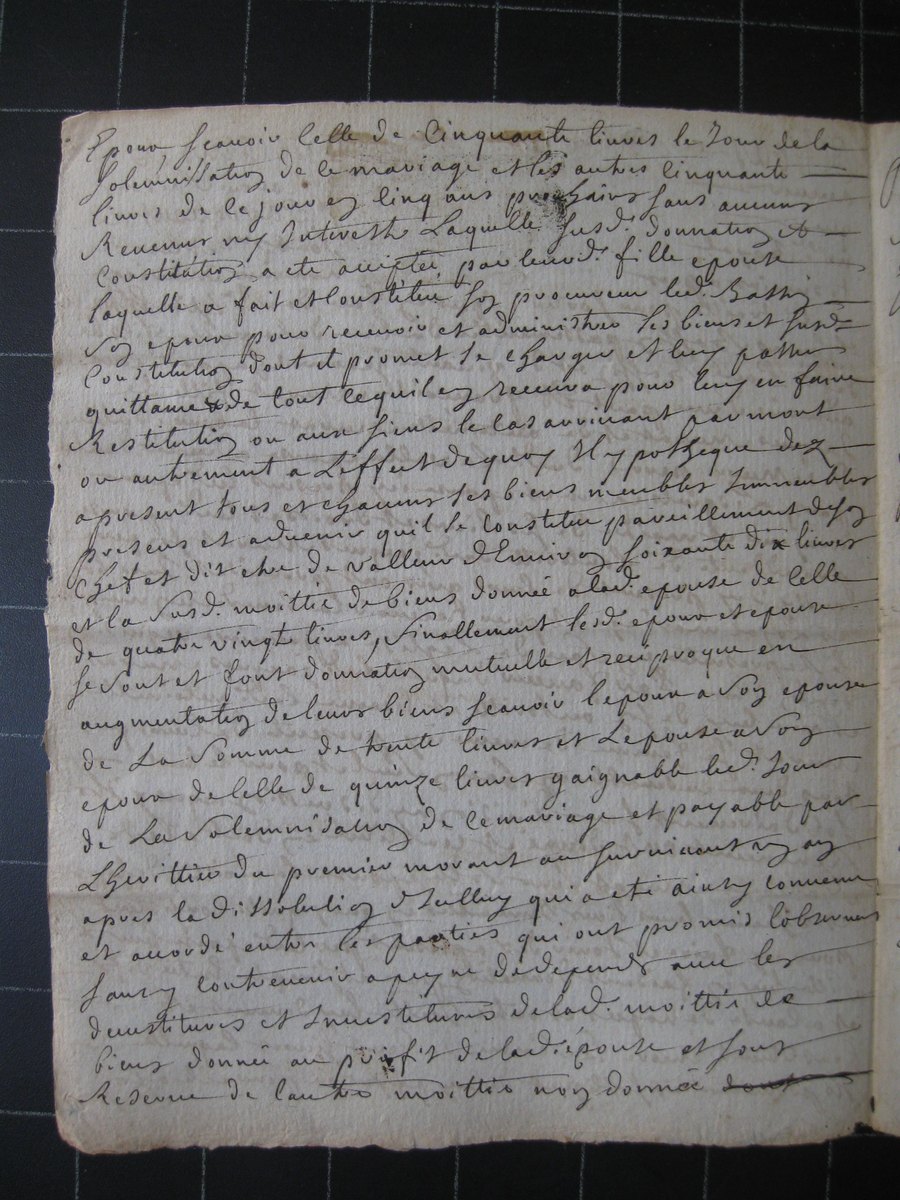 Epoux scavoir celle de Cinquante livres le Jour de la
Solemnisation de ce mariage et les autres cinquante
livres de ce jour en cinq ans prochains sans aucuns
Revenus ny Interests Laquelle susd. donnation et
Constitution a eté acceptée par leurd. fille epouse
laquelle a fait et constitué son procureur led.
son epoux pour recevoir et administrer ses biens et susd.
Constitution dont il promet se charger et luy passer
quittance de tout ce quil en recevra pour luy en faire
Restitution ou aux siens le cas arrivant par mort
ou autrement a L'effect de quoy Il hypotheque dez
apresent tous et chacuns ses biens meubles Immeubles
presens et advenir quil se constitue pareillement de son
chef et dit etre de valleur d'Environ soixante dix livres
et la susd. moittié de biens donnée a lad. epouse de celle
de quatre vingt livres, finallement lesd. epoux et epouse
se sont et font donnation mutuelle et reciproque en
augmentation de leurs biens scavoir l'epoux a son epouse
de La somme de trente livres et L'epouse a son
epoux de celle de quinze livres gaignable led. Jour
de La solemnisation de ce mariage et payable par
L'herittier du premier morant au survivant un an
apres la dissolution d'Iceluy qui a eté ainsy convenu
et accordé entre les parties qui ont promis l'observer
sans y contrevenir a peyne de depends avec les
devestitures et Investitures de lad. moittié de
biens donnée au profit de lad. epouse et sous
Reserve de l'autre moittié non donnée